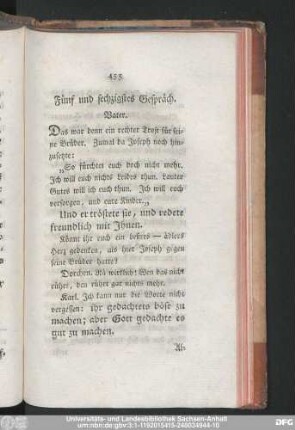 433
Fünf und sechzigstes Gespräch.
Vater.
Das war denn ein rechter Trost für sei-
ne Brüder. Zumal da Joseph noch hin-
zusetzte:
„So fürchtet euch doch nicht mehr.
Ich will euch nichts Leides thun. Lauter
Gutes will ich euch thun. Ich will euch
versorgen, und eure Kinder.„
Und er tröstete sie, und redete
freundlich mit Ihnen.
Könnt ihr euch ein bessers — ädlers
Herz gedenken, als hier Joseph gegen
seine Brüder hatte?
Dorchen. Nä wirklich! Wen das nicht
rührt, den rührt gar nichts mehr.
Karl. Ich kann nur die Worte nicht
vergeßen: ihr gedachtets böse zu
machen; aber Gott gedachte es
gut zu machen.
Universitäts- und Landesbibliothek Sachsen-Anhalt
urn:nbn:de:gbv:3:1-1192015415-246034944-16
DFG